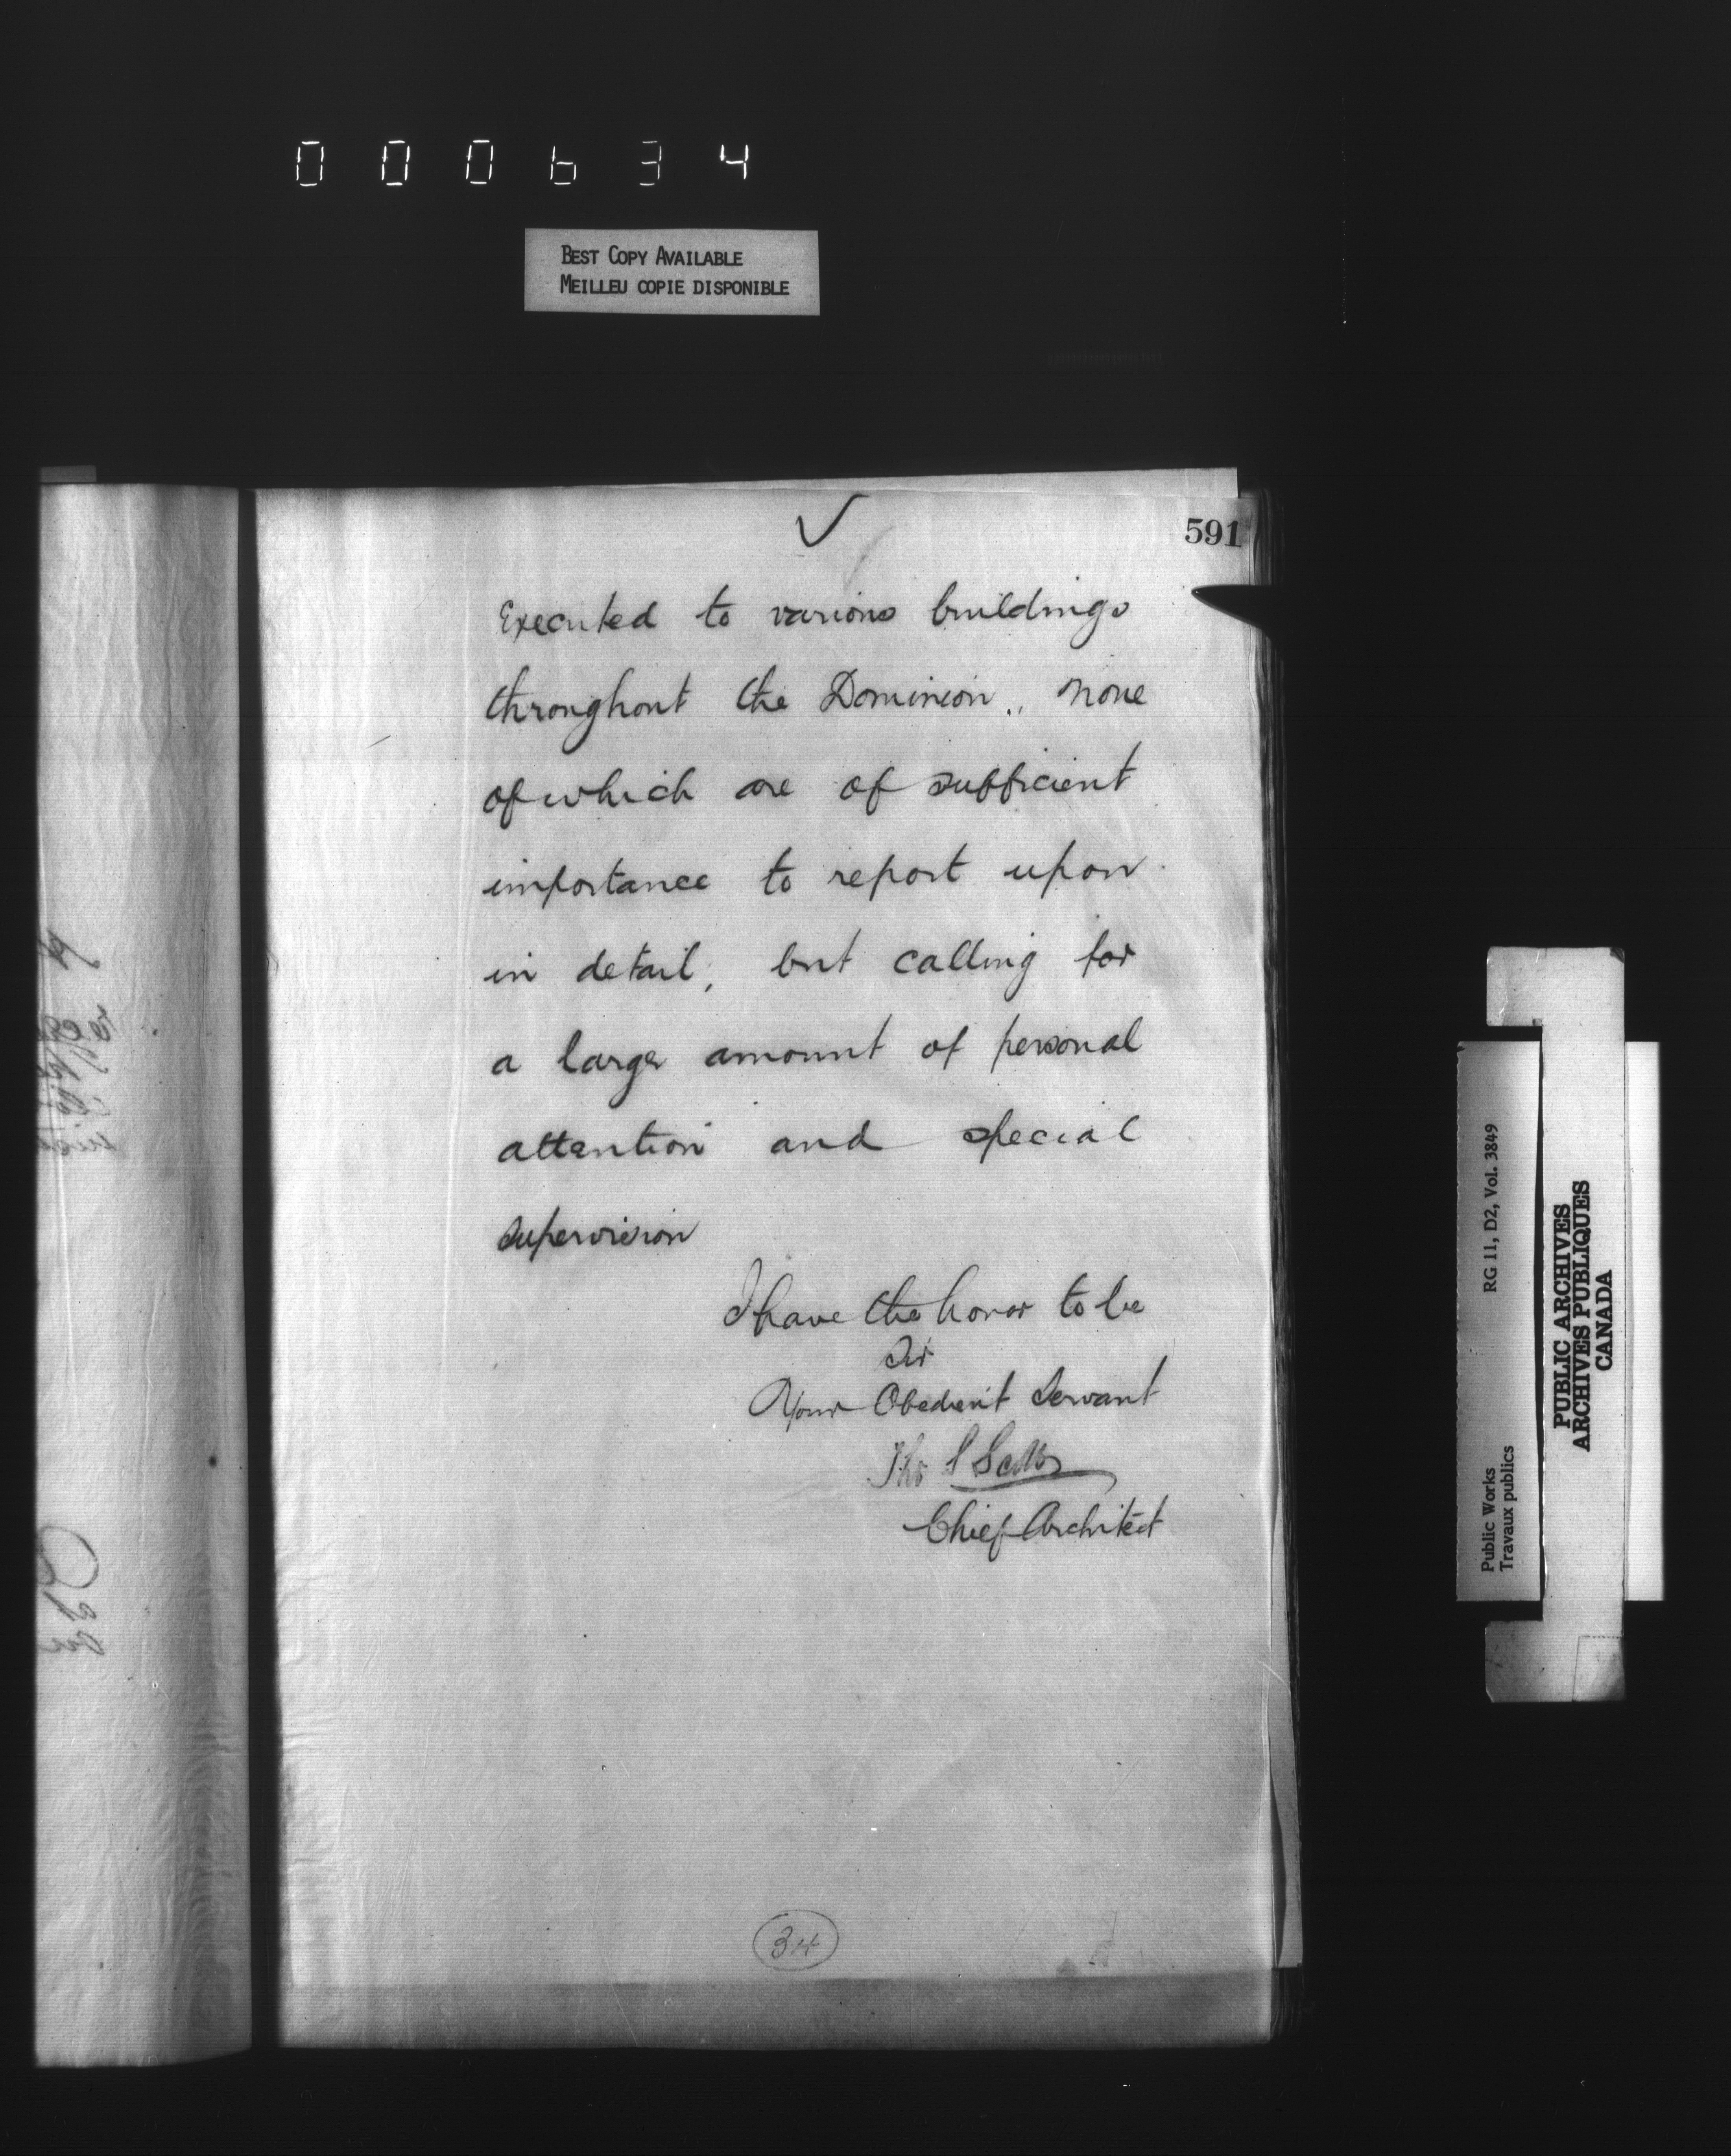 000634
BEST COPY AVAILABLE
MEILLEU COPIE DISPONIBLE
591
Executed to various buildings
throughout the Dominion., none
of which are of sufficient
importance to report upon
in detail, but calling for
a large amount of personal
attention and special
supervision
I have the honor to be
Sir
Your Obedient Servant
Thos S Scott
Chief Architect
34
RG 11, D2, Vol. 3849
Public Works
Travaux publics
PUBLIC ARCHIVES
ARCHIVES PUBLIQUES
CANADA